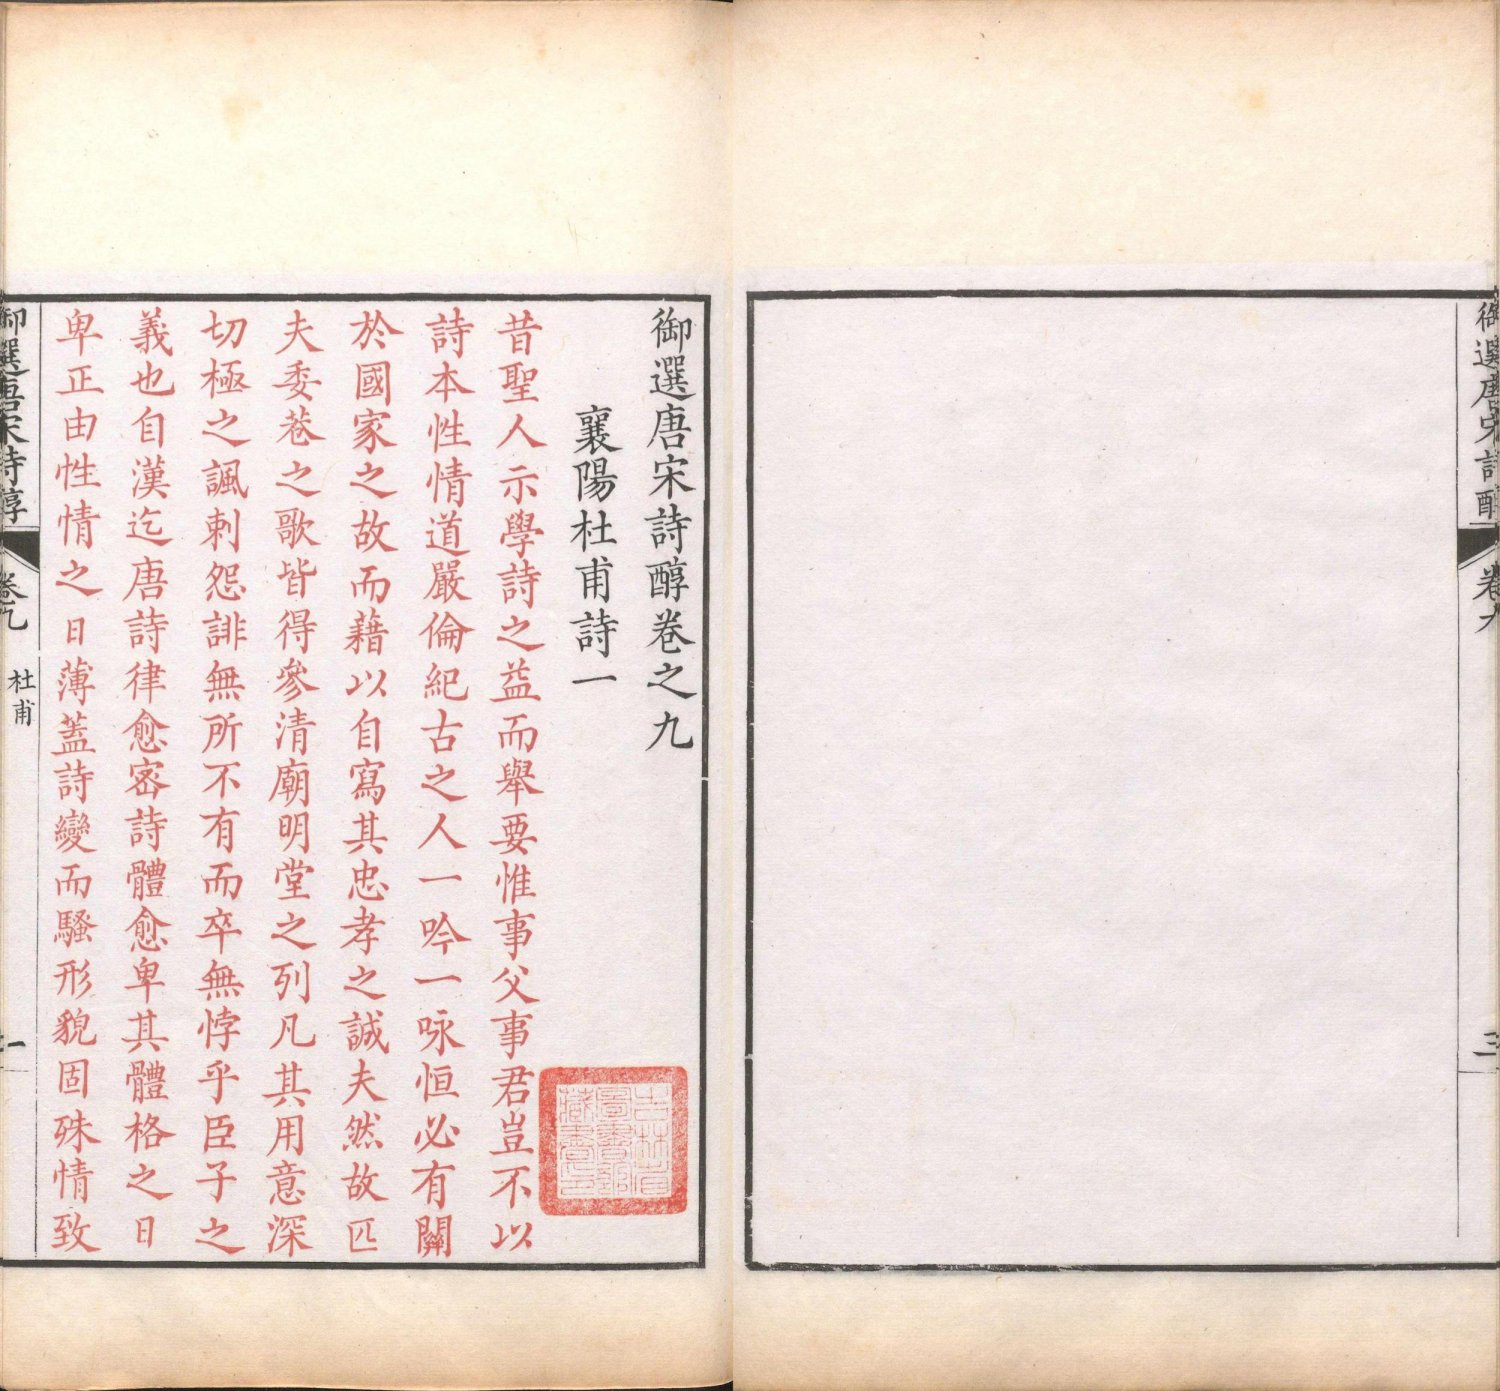 御選唐宋詩醇
卷九
三
御選唐宋詩醇卷之九
襄陽杜甫詩一
昔聖人示學詩之益而舉要惟事父事君豈不以
詩本性情道嚴倫紀古之人一吟一咏恒必有關
於國家之故而藉以自寫其忠孝之誠夫然故匹
夫委巷之歌皆得參清廟明堂之列凡其用意深
切極之諷刺怨誹無所不有而卒無悖乎臣子之
義也自漢迄唐詩律愈密詩體愈卑其體格之日
卑正由性情之日薄蓋詩變而騷形貌固殊情致
御選唐宋詩醇
卷九
杜甫
一
吉林省
圖書館
藏書印